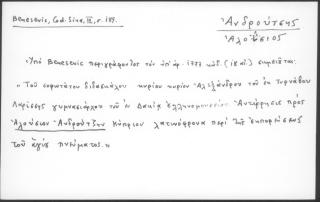 Benesevic, Cod. Sina, III, σ. 189.
Ἀνδρούτσης
Ἀλοΐσιος
Ὑπὸ Benesevic περιγράφοντος τὸν ὑπ' ἀρ. 1777 κώδ. (ιη´ αἰ.) σημειοῦται:
"Τοῦ σοφωτάτου διδασκάλου κυρίου κυρίου Ἀλεξάνδρου τοῦ ἐκ Τυρνάβου
Λαρίσσης γυμνασιάρχου τοῦ ἐν Δακίᾳ ἑλληνομουσείου Ἀντίρρησις πρὸς
Ἀλοΰσιον Ἀνδρούτζην Κύπριον λατινόφρονα περὶ τῆς ἐκπορεύσεως
τοῦ ἁγίου πνεύματος."